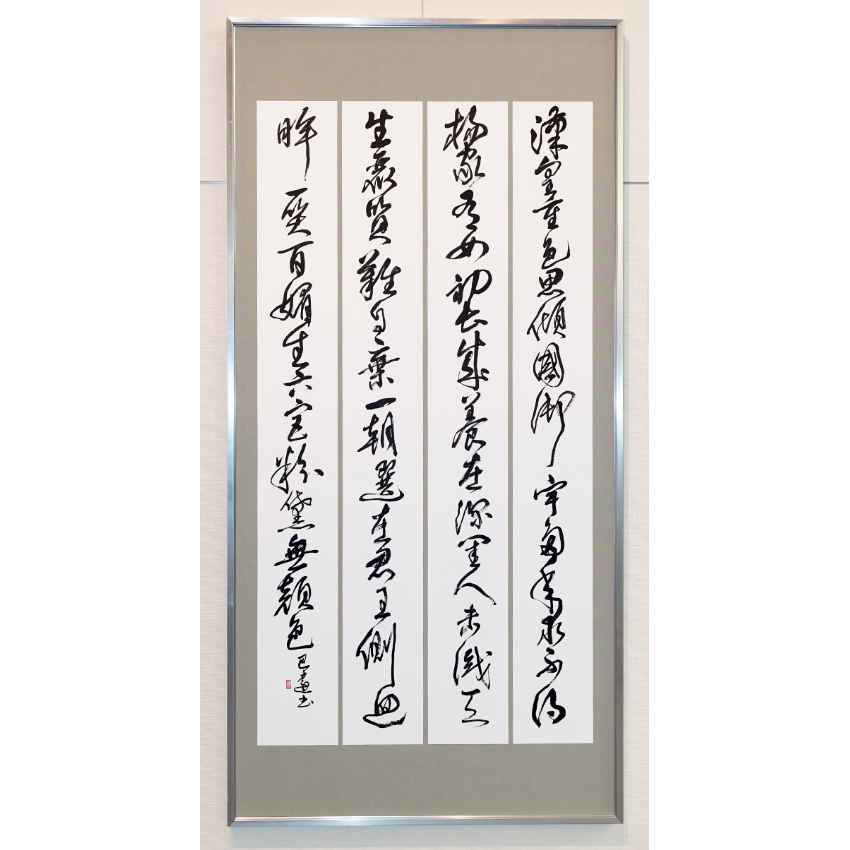 漢皇重色思傾國御宇多年求不得
楊家有女初長成養在深閨人未識天
生麗質難自棄一朝選在君王側回
眸一笑百媚生六宮粉黛無顔色
書